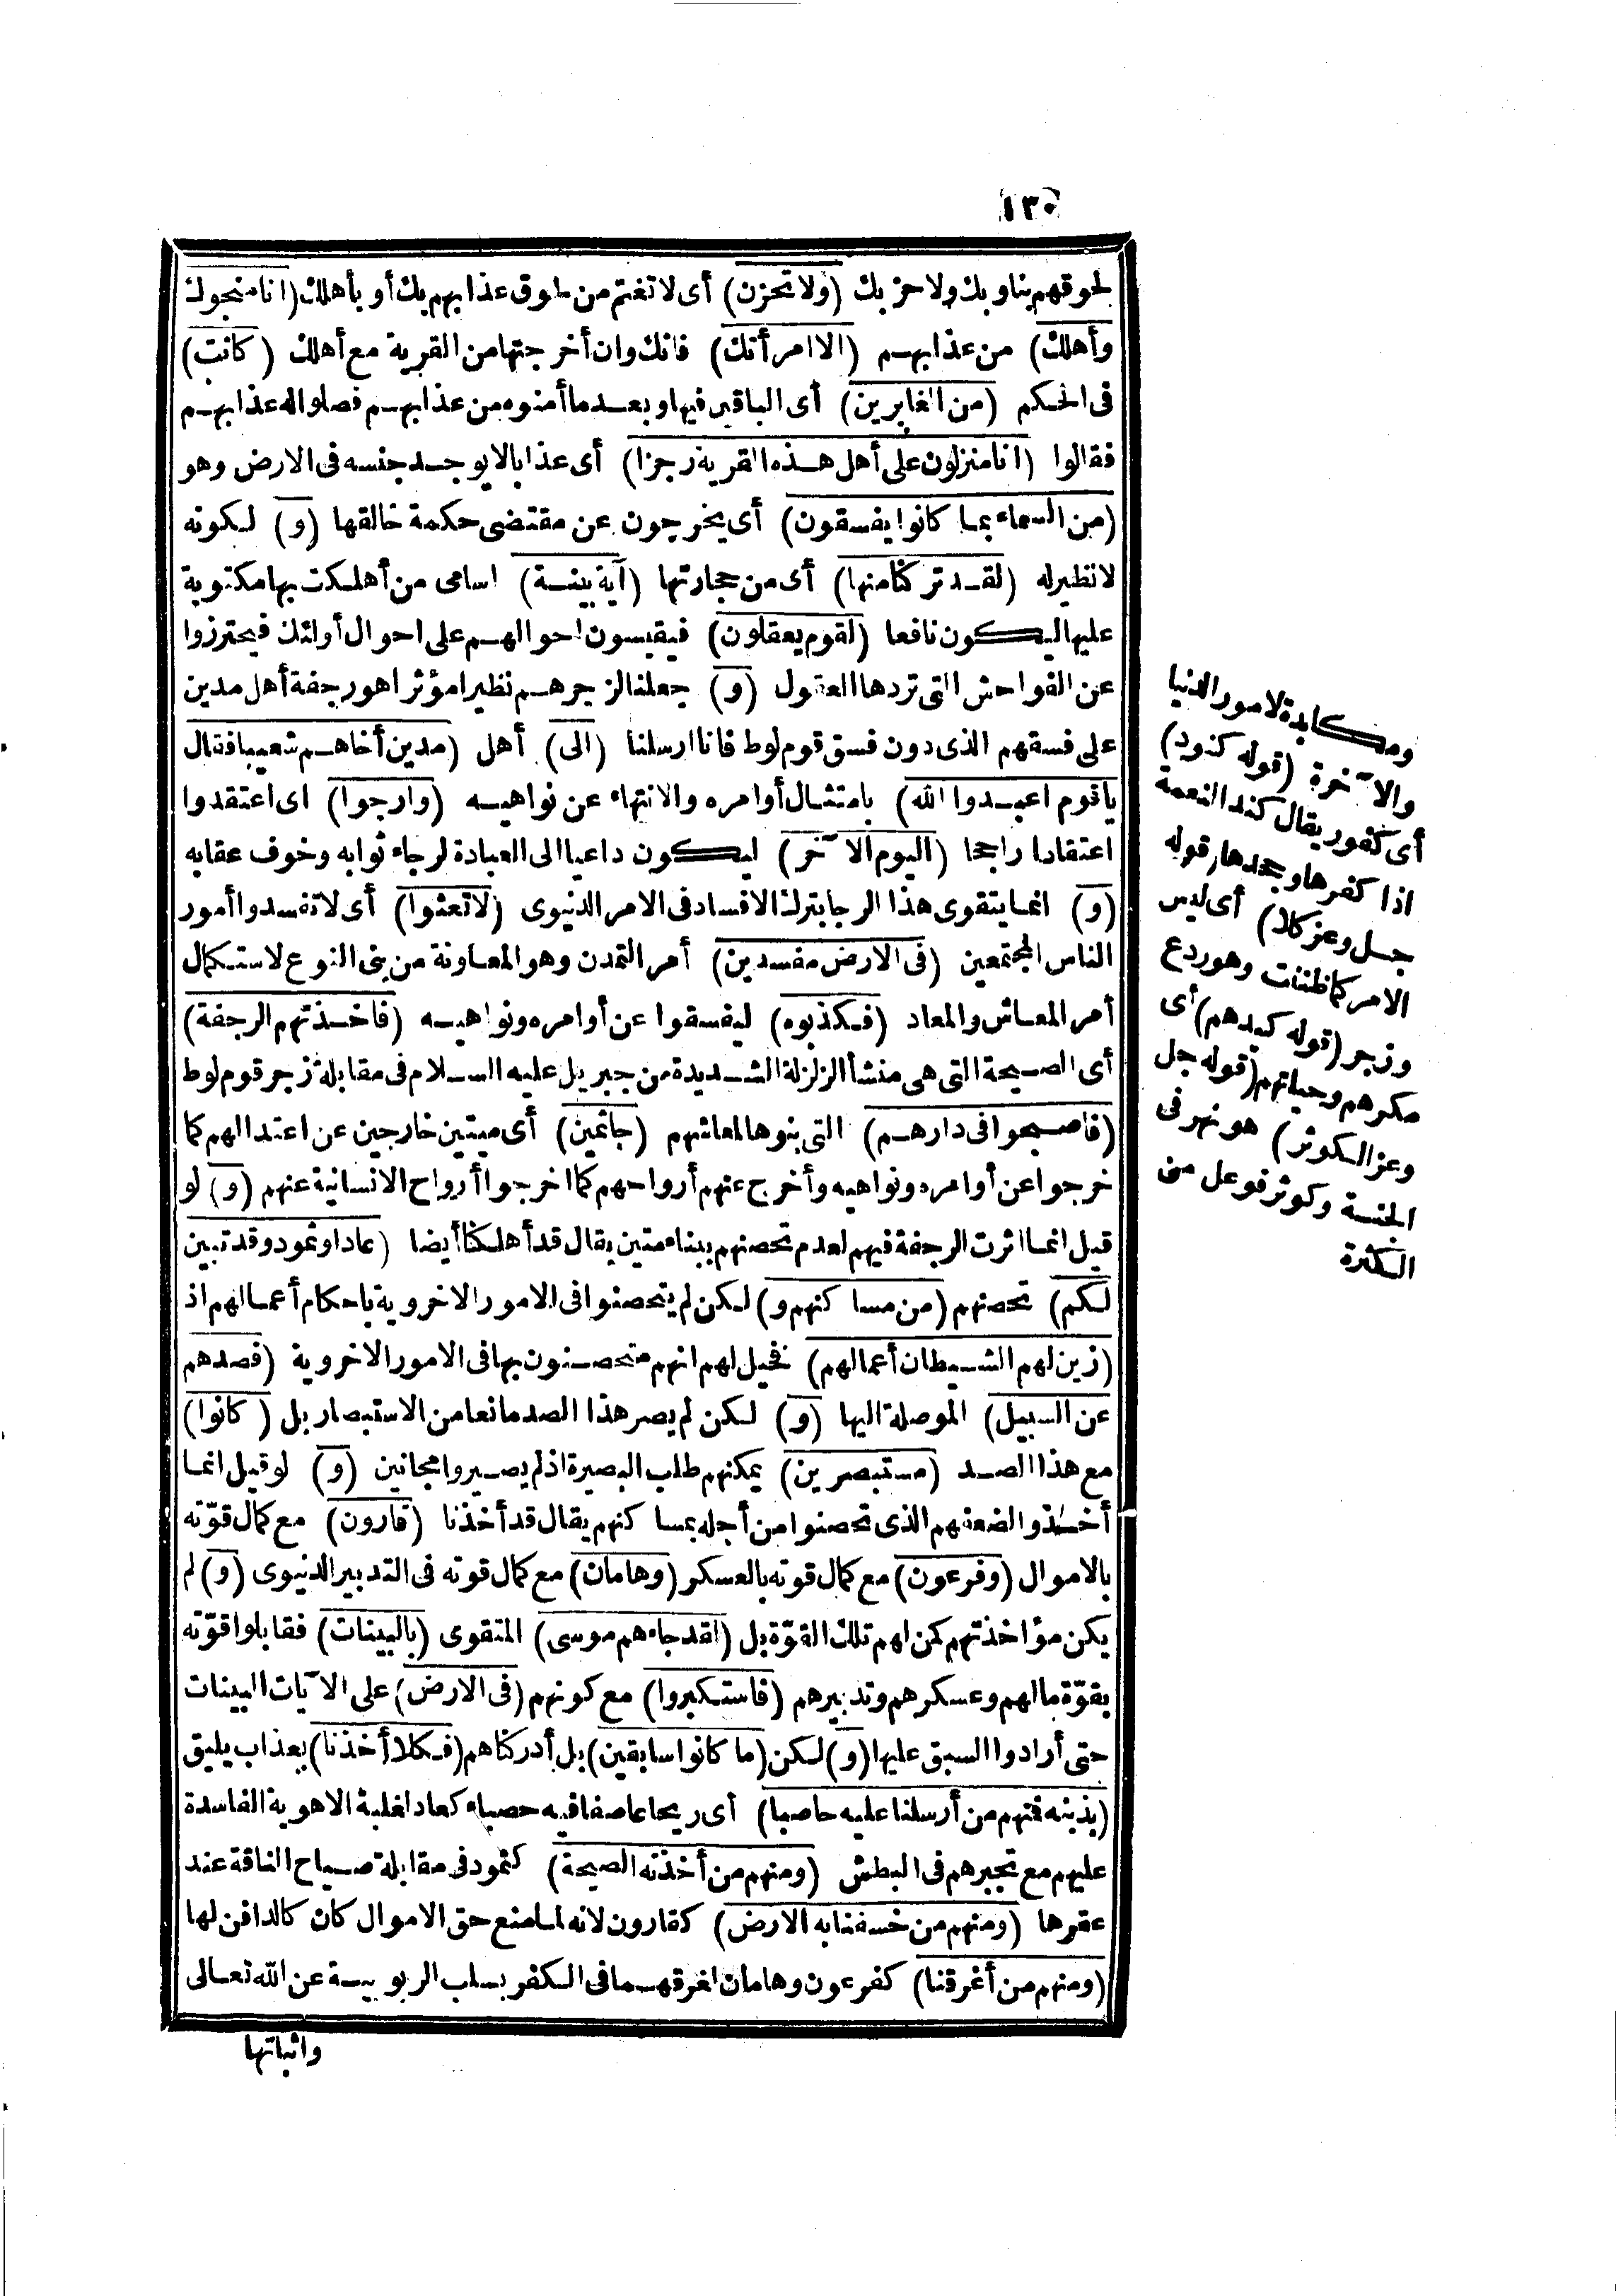 ١٣٠
لحوقهم بناوبك ولا حزبك (ولا تحزن) أى لا تغتم من لحوق عذابهم بك أو بأهلك (انا منجوك
وأهلك) من عذابهم (الا امرأتك) فانك وان أخرجتها من القرية مع أهلك (كانت)
فى الحكم (من الغابرين) أى الباقين فيها وبعدما أمنوه من عذابهم فصلوا له عذابهم
فقالوا (انا منزلون على أهل هذه القرية رجزا) أى عذابا لا يوجد جنسه فى الارض وهو
(من السماء بما كانوا يفسقون) أى يخرجون عن مقتضى حكمة خالقها (و) لكونه
لا نظير له (لقد تركنا منها) أى من حجارتها (آية بينة) اسامى من أهلكت بها مكتوبة
عليها ليكون نافعا (لقوم يعقلون) فيقيسون احوالهم على احوال أولئك فيحترزوا
عن الفواحش التى تردها العقول (و) جعلنا لزجرهم نظيرا مؤثرا هو رجفة أهل مدين
على فسقهم الذى دون فسق قوم لوط فانا ارسلنا (الى) أهل (مدين أخاهم شعيبا فقال
ياقوم اعبدوا الله) بامتثال أوامره والانتهاء عن نواهيه (وارجوا) اى اعتقدوا
اعتقادا راجحا (اليوم الآخر) ليكون داعيا الى العبادة لرجاء ثوابه وخوف عقابه
(و) انما يتقوى هذا الرجا بترك الافساد فى الامر الدنيوى (لا تعثوا) أى لا تفسدوا أمور
الناس المجتمعين (فى الارض مفسدين) أمر التمدن وهو المعاونة من بنى النوع لاستكمال
أمر المعاش والمعاد (فكذبوه) ليفسقوا عن أوامره ونواهيه (فاخذتهم الرجفة)
أى الصيحة التى هى منشأ الزلزلة الشديدة من جبريل عليه السلام فى مقابلة زجر قوم لوط
(فاصبحوا فى دارهم) التى بنوها لمعاشهم (جاثمين) أى ميتين خارجين عن اعتدالهم كما
خرجوا عن أوامره ونواهيه وأخرج عنهم أرواحهم كما اخرجوا أرواح الانسانية عنهم (و) لو
قيل انما اثرت الرجفة فيهم لعدم تحصنهم ببناء متين يقال قد أهلكنا أيضا (عادا وثمود وقد تبين
لكم) تحصنهم (من مساكنهم و) لكن لم يتحصنوا فى الامور الاخروية باحكام أعمالهم اذ
(زين لهم الشيطان أعمالهم) فخيل لهم انهم متحصنون بها فى الامور الاخروية (فصدهم
عن السبيل) الموصلة اليها (و) لكن لم يصر هذا الصد مانعا من الاستبصار بل (كانوا)
مع هذا الصد (مستبصرين) يمكنهم طلب البصيرة اذ لم يصيروا مجانين (و) لو قيل انما
أخذوا لضعفهم الذى تحصنوا من أجله بمساكنهم يقال قد أخذنا (قارون) مع كمال قوّته
بالاموال (وفرعون) مع كمال قوته بالعسكر (وهامان) مع كمال قوته فى التدبير الدنيوى (و) لم
يكن مؤاخذتهم كمن لهم تلك القوّة بل (لقد جاءهم موسى) المتقوى (بالبينات) فقابلوا قوّته
بقوّة مالهم وعسكرهم وتدبيرهم (فاستكبروا) مع كونهم (فى الارض) على الآيات البينات
حتى أرادوا السبق عليها (و) لكن (ما كانوا سابقين) بل أدركناهم (فكلا أخذنا) بعذاب يليق
(بذنبه فمنهم من أرسلنا عليه حاصبا) أى ريحا عاصفا فيه حصباء كعاد لغلبة الاهوية الفاسدة
عليهم مع تجبرهم فى البطش (ومنهم من أخذته الصيحة) كثمود فى مقابلة صياح الناقة عند
عقرها (ومنهم من خسفنا به الارض) كقارون لانه لما منع حق الاموال كان كالدافن لها
(ومنهم من أغرقنا) كفرعون وهامان لغرقهما فى الكفر بسلب الربوبية عن الله تعالى
واثباتها
ومكابدة لامور الدنيا
والآخرة (قوله كنود)
أى كفور يقال كند النعمة
اذا كفرها وجحدها (قوله
جل وعز كلا) أى ليس
الامر كما ظننت وهو ردع
وزجر (قوله كيدهم) أى
مكرهم وحياتهم (قوله جل
وعز الكوثر) هو نهر فى
الجنة وكوثر فوعل من
الكثرة